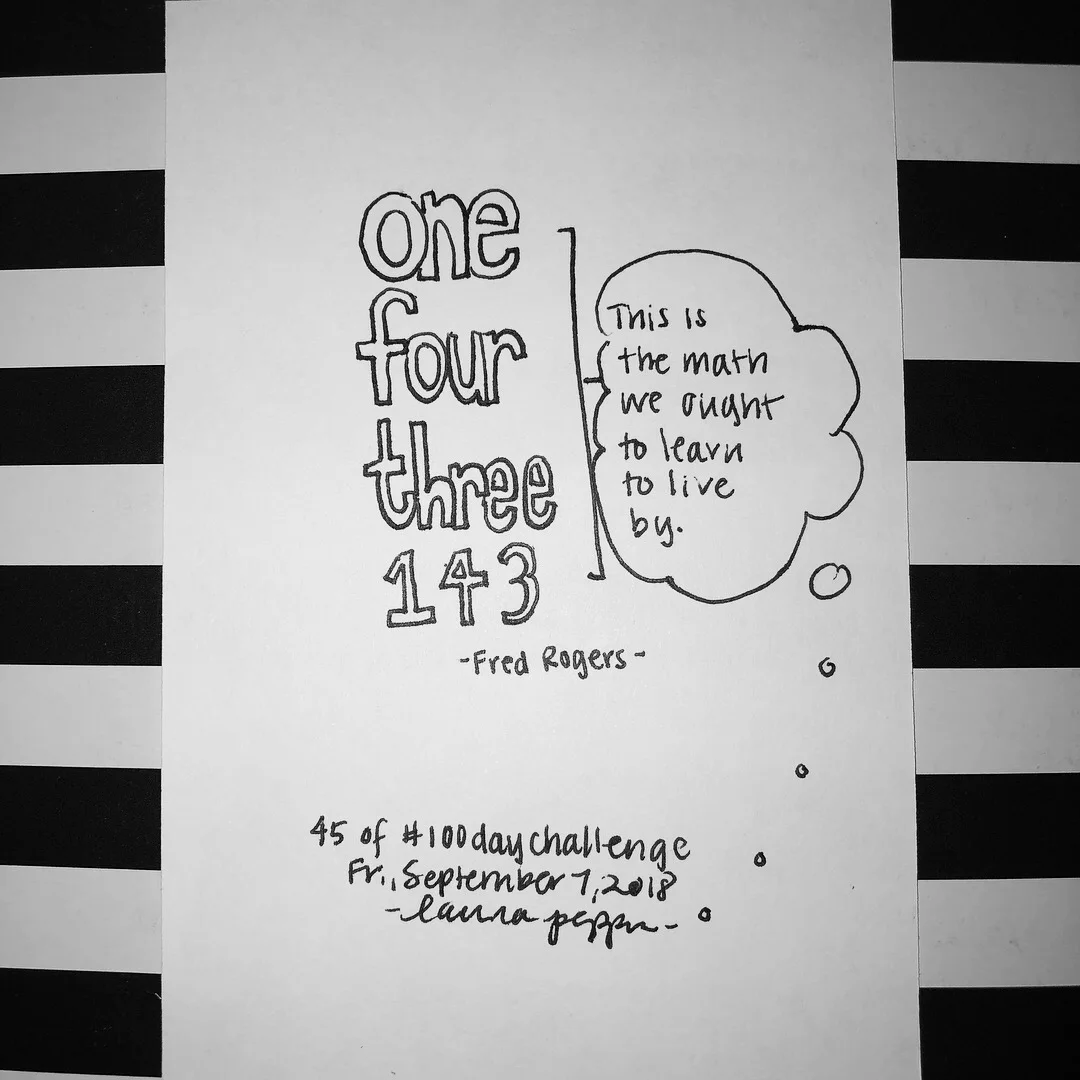 one
four
three
143
-Fred Rogers-
This is
the math
we ought
to learn
to live
by.
45 of #100daychallenge
Fri., September 7, 2018